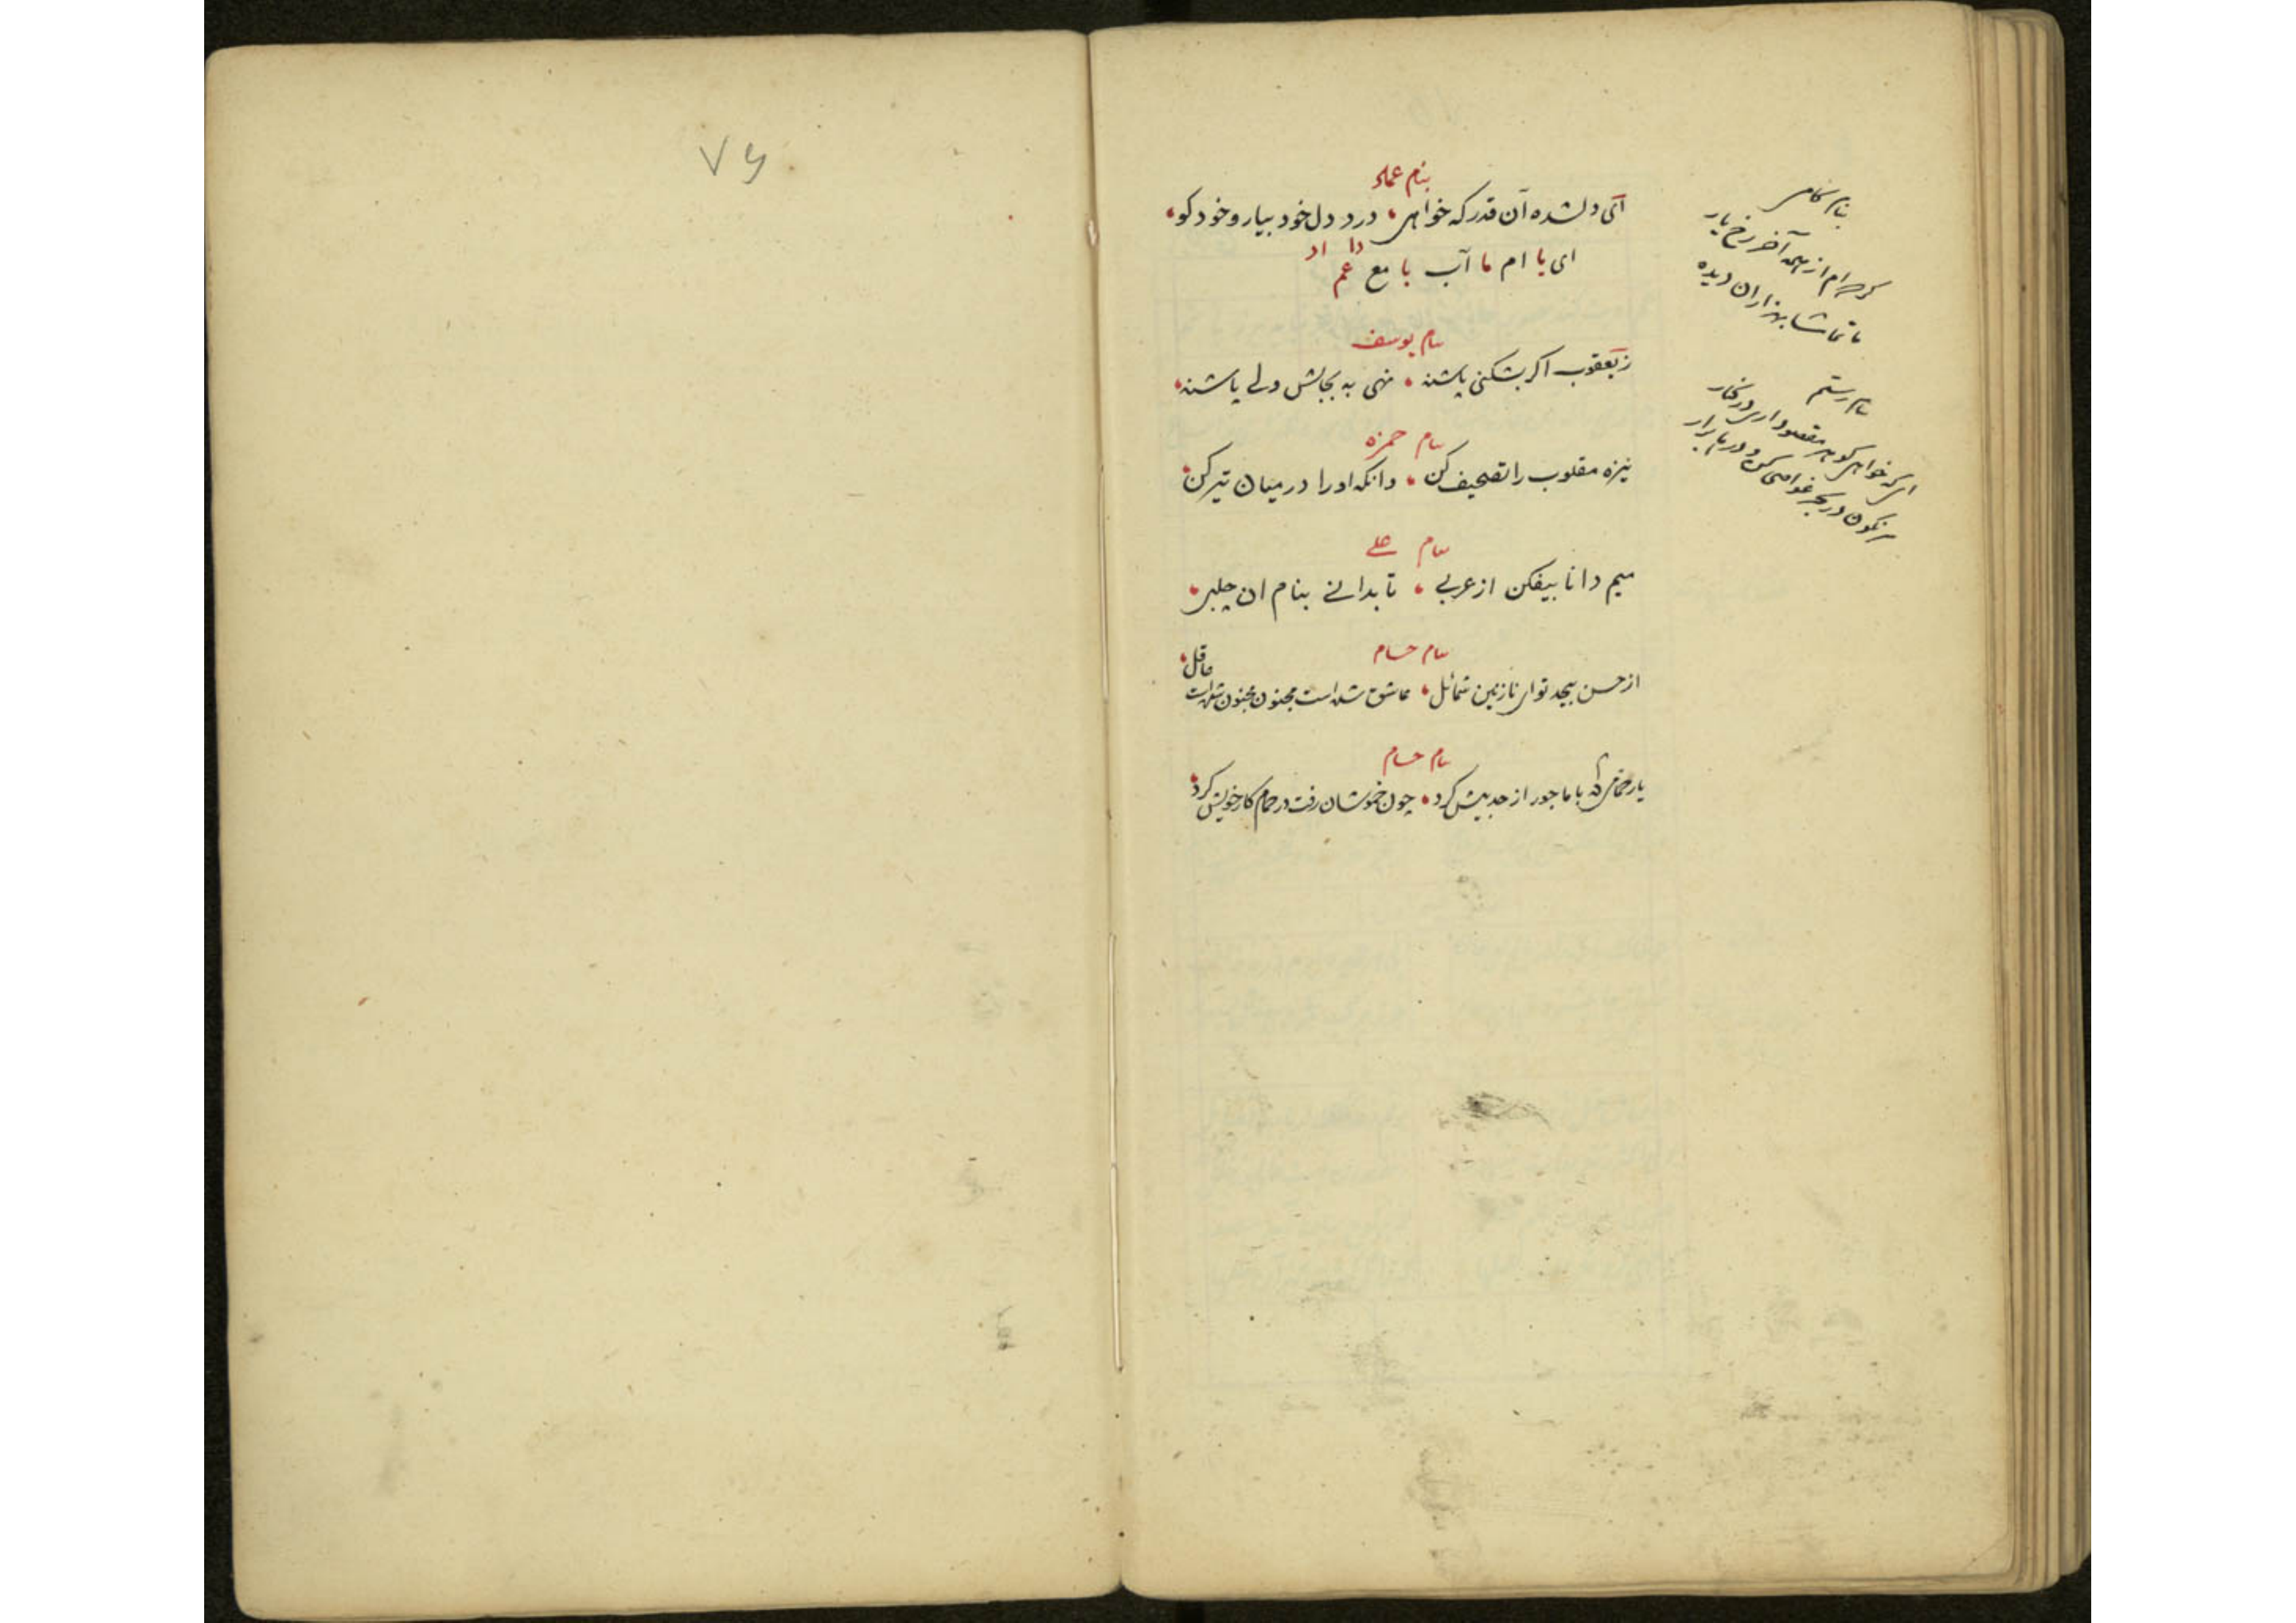 بنام عماد
ای دلشده آن قدر که خواهی درد دل خود بیار و خود کو
دا اد
ای با ام ما آب با مع عم
بنام یوسف
ز یعقوب اکر بشکنی پاشنه نهی به بجایش ولے پاشنه
بنام حمزه
نیزه مقلوب را تصحیف کن وانکه او را در میان تیر کن
بنام علے
میم دانا بیفکن از عربی تا بدانے بنام ان چلبی
بنام حسام
از حسن بیحد تو ای نازنین شمائل عاشق شده است مجنون مجنون شده است
عاقل
بنام حسام
یار حمامی که با ما جور از حد بیش کرد چون خموشان رفت در حمام کار خویش کرد
بنام
کرده ام از همه آخر رخ یار
تا تماشا هزاران دیده
بنام رستم
ای که خواهی کوهر مقصود اری در کنار
سرنکون در بحر غواصی کن و در برار
۷۶